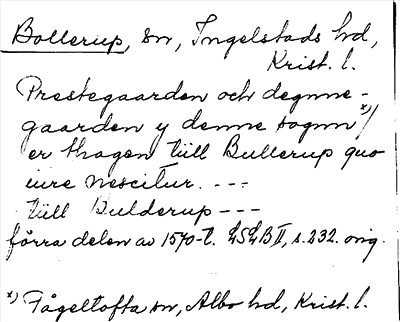 Bollerup, sn, Ingelstads hd,
Krist. l.
Prestegaarden och degnne-
gaarden y denne sognn *)/
er thagen tüll Bullerup quo
iure nescitur. ---
tüll Bulderup ---
förra delen av 1570-t. LSLB II, s. 232. orig.
*) Fågeltofta sn, Albo hd, Krist. l.